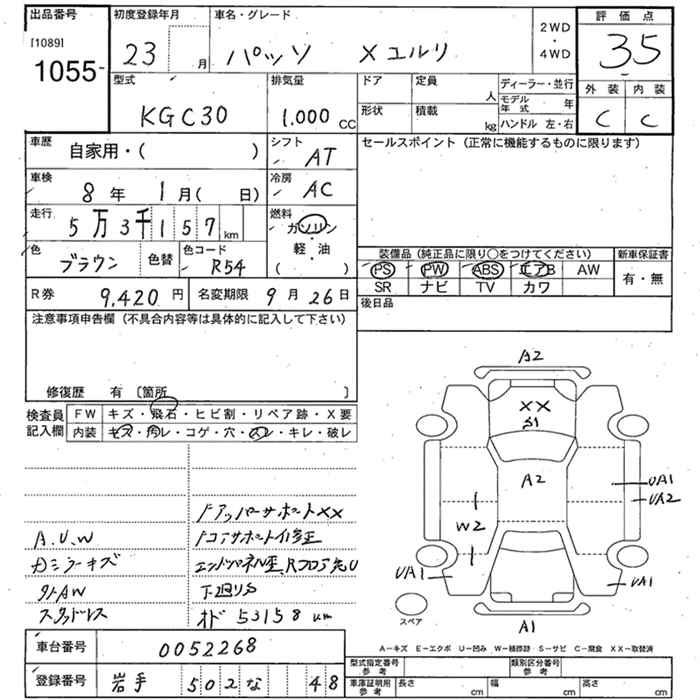 出品番号
[1089]
1055-
初度登録年月
23 月
車名・グレード
パッソ Xユルリ
2WD
・
4WD
評価点
3.5
外装 内装
C C
型式
KGC30
排気量
1.000 CC
ドア
定員
人
形状
積載
kg
ディーラー・並行
モデル年式 年
ハンドル 左・右
車歴
自家用・( )
シフト
AT
セールスポイント (正常に機能するものに限ります)
車検
8年 1月( 日)
冷房
AC
走行
5万3千157km
燃料
ガソリン
・
軽・油
( )
色
ブラウン
色替
色コード
R54
装備品 (純正品に限り○をつけてください)
新車保証書
PS PW ABS エアB AW
SR ナビ TV カワ
有・無
R券 9,420円
名変期限 9月26日
後日品
注意事項申告欄 (不具合内容等は具体的に記入して下さい)
修復歴 有 〔箇所 〕
検査員
記入欄
FW キズ・飛石・ヒビ割・リペア跡・X要
内装 キズ・汚レ・コゲ・穴・スレ・キレ・破レ
ドアッパーサポートXX
A.U.W
ドコアサポート修正
カミラーキズ
タトAW
下廻りS
スタッドレス
オド 53158km
A2
XX
S1
A2
UA1
UA2
W2
UA1
UA1
スペア
A1
A-キズ E-エクボ U-凹み W-補修跡 S-サビ C-腐食 XX-取替済
車台番号 0052268
登録番号 岩手 502 な 48
型式指定番号
参考
類別区分番号
参考
車庫証明用
参考
長さ cm
幅 cm
高さ cm